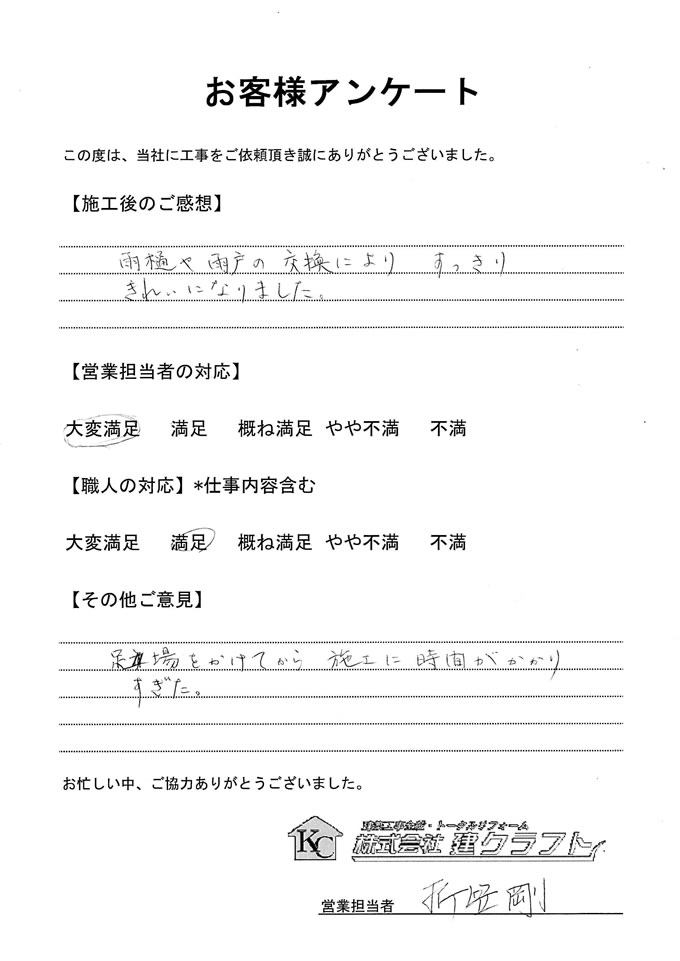 お客様アンケート
この度は、当社に工事をご依頼頂き誠にありがとうございました。
【施工後のご感想】
雨樋や雨戸の交換により すっきり
きれいになりました。
【営業担当者の対応】
大変満足 満足 概ね満足 やや不満 不満
【職人の対応】*仕事内容含む
大変満足 満足 概ね満足 やや不満 不満
【その他ご意見】
足場をかけてから 施工に時間がかかり
すぎた。
お忙しい中、ご協力ありがとうございました。
KC
建築工事全般・トータルリフォーム
株式会社 建クラフト
営業担当者 折笠剛